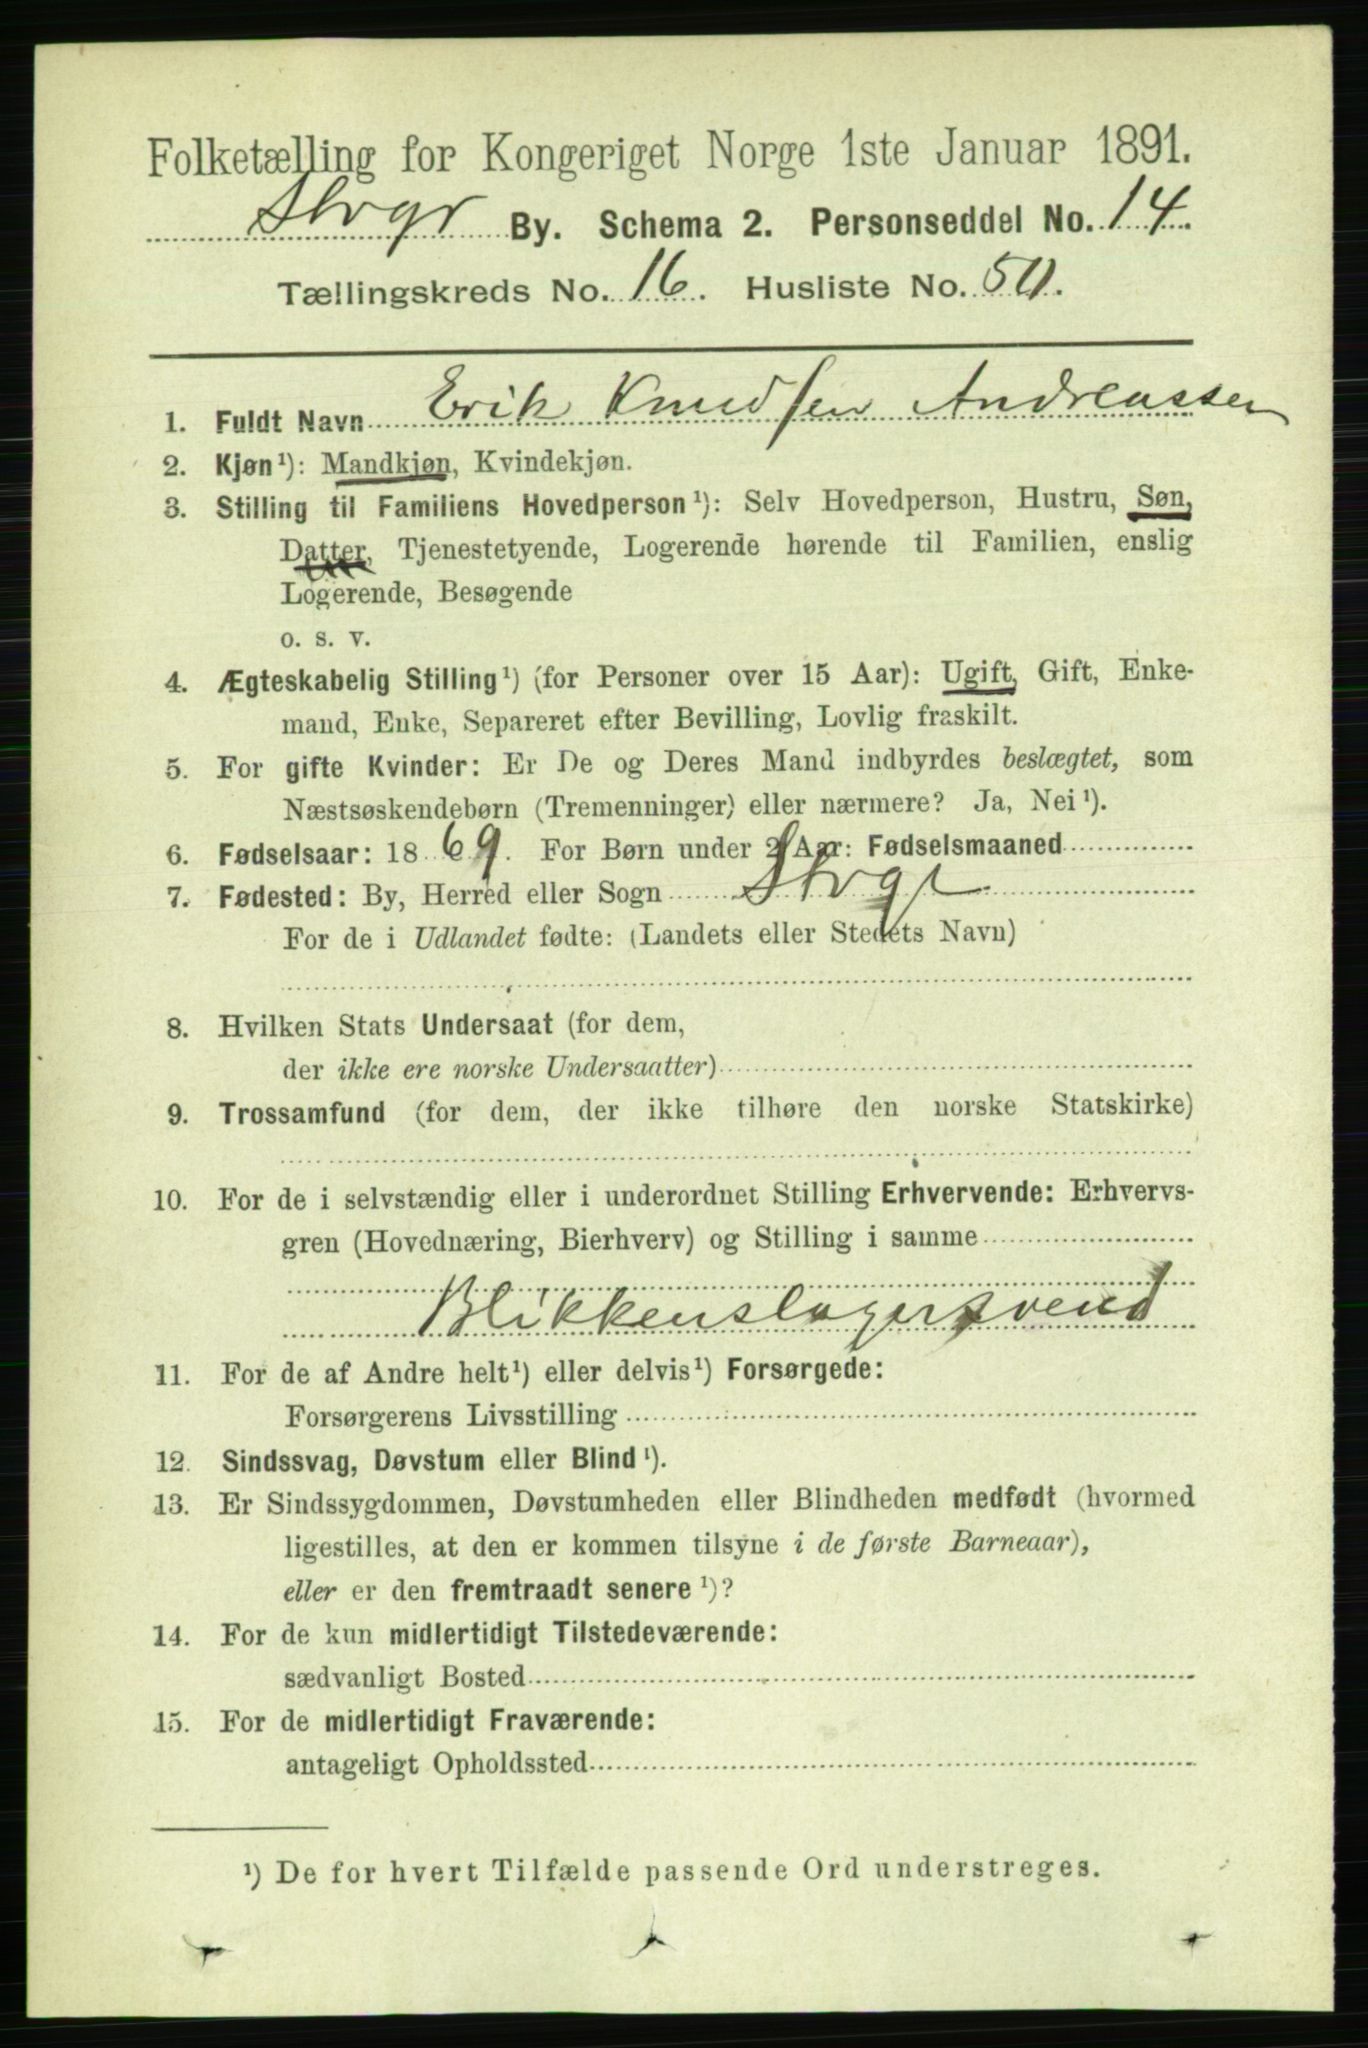 Folketælling for Kongeriget Norge 1ste Januar 1891.
Stvgr By. Schema 2. Personseddel No. 14.
Tællingskreds No. 16. Husliste No. 50.
1. Fuldt Navn Erik Knudsen Andreassen
2. Kjøn¹): Mandkjøn, Kvindekjøn.
3. Stilling til Familiens Hovedperson¹): Selv Hovedperson, Hustru, Søn,
Datter, Tjenestetyende, Logerende hørende til Familien, enslig
Logerende, Besøgende
o. s. v.
4. Ægteskabelig Stilling¹) (for Personer over 15 Aar): Ugift, Gift, Enke-
mand, Enke, Separeret efter Bevilling, Lovlig fraskilt.
5. For gifte Kvinder: Er De og Deres Mand indbyrdes beslægtet, som
Næstsøskendebørn (Tremenninger) eller nærmere? Ja, Nei¹).
6. Fødselsaar: 1869. For Børn under 2 Aar: Fødselsmaaned
7. Fødested: By, Herred eller Sogn Stvgr
For de i Udlandet fødte: (Landets eller Stedets Navn)
8. Hvilken Stats Undersaat (for dem,
der ikke ere norske Undersaatter)
9. Trossamfund (for dem, der ikke tilhøre den norske Statskirke)
10. For de i selvstændig eller i underordnet Stilling Erhvervende: Erhvervs-
gren (Hovednæring, Bierhverv) og Stilling i samme
Blikkenslagersvend
11. For de af Andre helt¹) eller delvis¹) Forsørgede:
Forsørgerens Livsstilling
12. Sindssvag, Døvstum eller Blind¹).
13. Er Sindssygdommen, Døvstumheden eller Blindheden medfødt (hvormed
ligestilles, at den er kommen tilsyne i de første Barneaar),
eller er den fremtraadt senere¹)?
14. For de kun midlertidigt Tilstedeværende:
sædvanligt Bosted
15. For de midlertidigt Fraværende:
antageligt Opholdssted
¹) De for hvert Tilfælde passende Ord understreges.